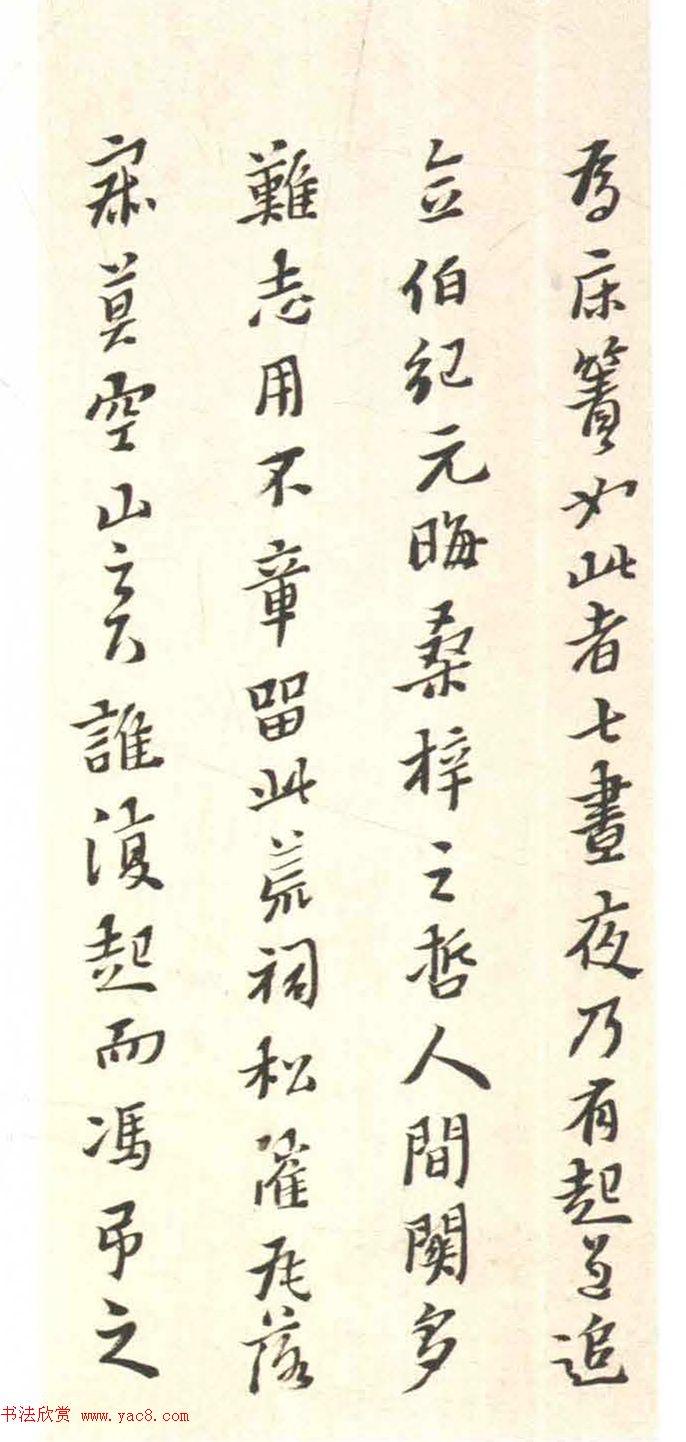 為床簀如此者七晝夜乃有起色追
念伯紀元晦桑梓之哲人間關多
難志用不章留此荒祠松摧瓦落
寂莫空山矣誰復起而馮弔之
书法欣赏 www.yac8.com